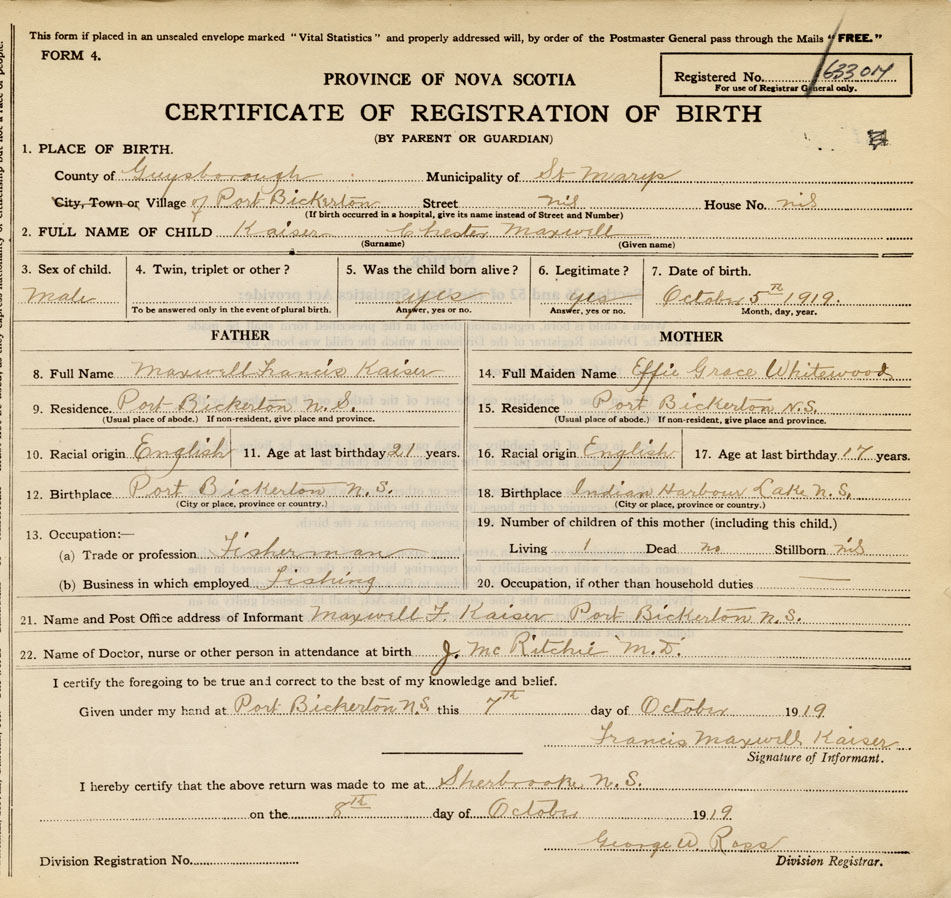 This form if placed in an unsealed envelope marked "Vital Statistics" and properly addressed will, by order of the Postmaster General pass through the Mails "FREE."
FORM 4.
Registered No. 633017
For use of Registrar General only.
PROVINCE OF NOVA SCOTIA
CERTIFICATE OF REGISTRATION OF BIRTH
(BY PARENT OR GUARDIAN)
1. PLACE OF BIRTH.
County of Guysborough Municipality of St Marys
City, Town or Village of Port Bickerton Street nil House No. nil
(If birth occurred in a hospital, give its name instead of Street and Number)
2. FULL NAME OF CHILD Kaiser Chester Maxwill
(Surname) (Given name)
3. Sex of child. 4. Twin, triplet or other? 5. Was the child born alive? 6. Legitimate? 7. Date of birth.
Male yes yes October 5th 1919.
To be answered only in the event of plural birth. Answer, yes or no. Answer, yes or no. Month, day, year.
FATHER
8. Full Name Maxwell Francis Kaiser
9. Residence. Port Bickerton N.S.
(Usual place of abode.) If non-resident, give place and province.
10. Racial origin English 11. Age at last birthday 21 years.
12. Birthplace Port Bickerton N.S.
(City or place, province or country.)
13. Occupation:—
(a) Trade or profession Fisherman
(b) Business in which employed Fishing
MOTHER
14. Full Maiden Name Effie Grace Whitewood
15. Residence Port Bickerton N.S.
(Usual place of abode.) If non-resident, give place and province.
16. Racial origin English 17. Age at last birthday 17 years.
18. Birthplace Indian Harbour Lake N.S.
(City or place, province or country.)
19. Number of children of this mother (including this child.)
Living 1 Dead no Stillborn nil
20. Occupation, if other than household duties
21. Name and Post Office address of Informant Maxwill F. Kaiser Port Bickerton N.S.
22. Name of Doctor, nurse or other person in attendance at birth J. McRitchie M.D.
I certify the foregoing to be true and correct to the best of my knowledge and belief.
Given under my hand at Port Bickerton N.S this 7th day of October 1919
Francis Maxwill Kaiser
Signature of Informant.
I hereby certify that the above return was made to me at Sherbrooke N.S.
on the 8th day of October 1919.
George W. Ross
Division Registration No. Division Registrar.